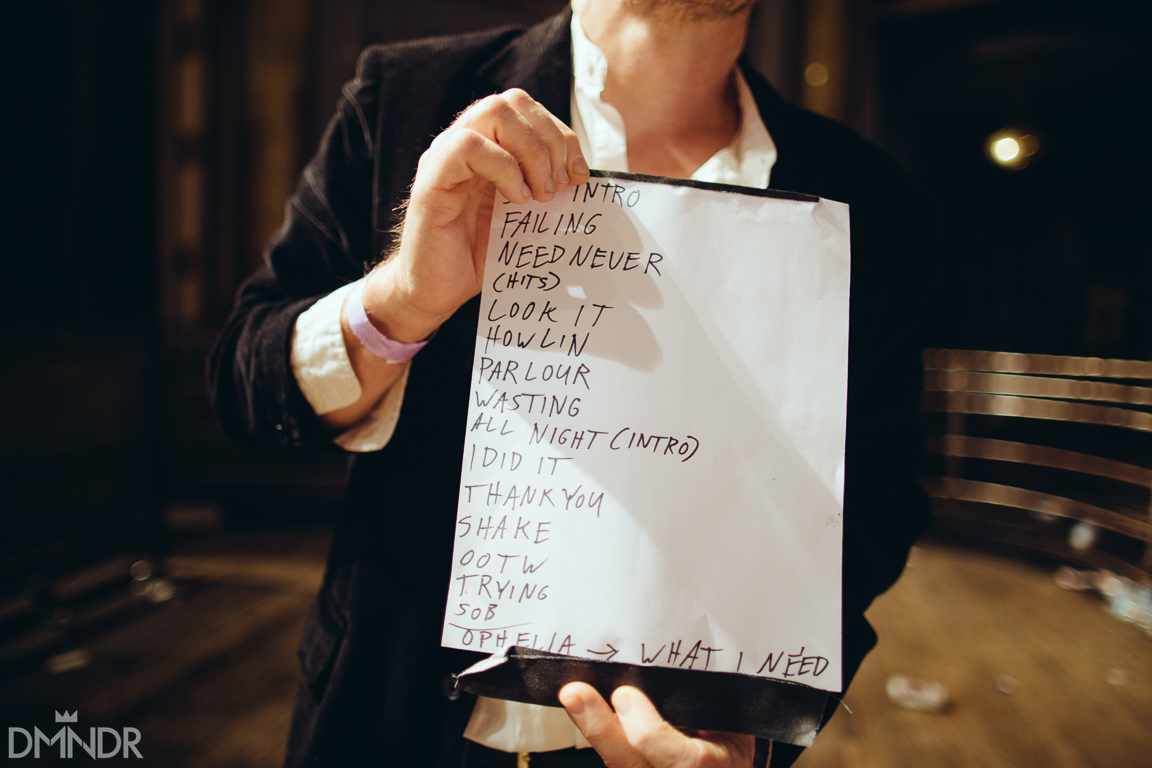 INTRO
FAILING
NEED NEVER
(HITS)
LOOK IT
HOWLIN
PARLOUR
WASTING
ALL NIGHT (INTRO)
I DID IT
THANK YOU
SHAKE
OOTW
TRYING
SOB
OPHELIA → WHAT I NÉED
DMNDR